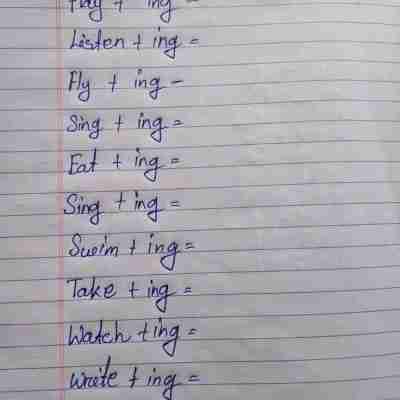 Play + ing -
Listen + ing =
Fly + ing -
Sing + ing =
Eat + ing =
Sing + ing =
Swim + ing =
Take + ing =
Watch + ing =
Write + ing =